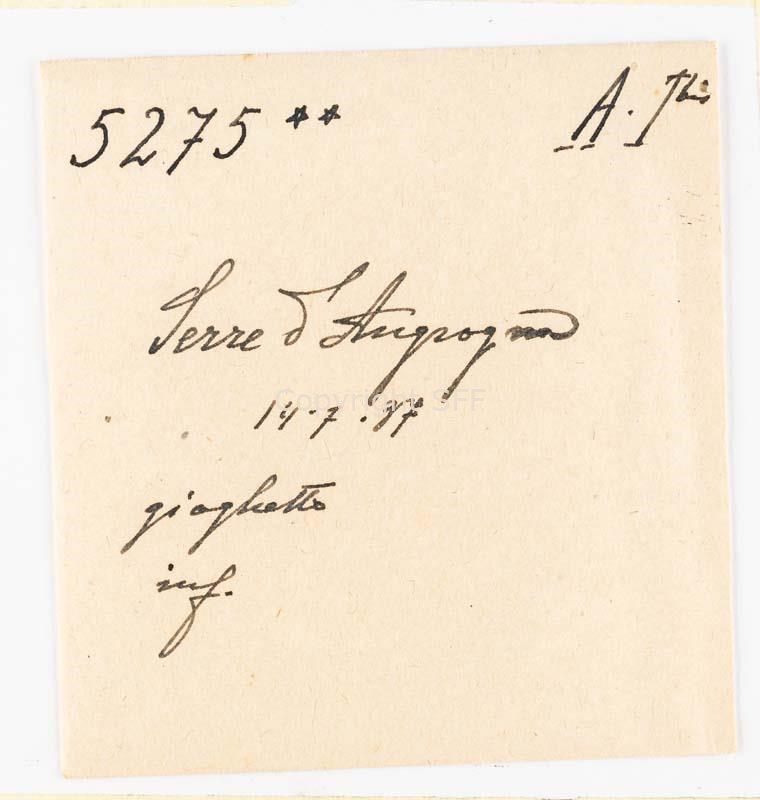 5275 **
A. Ibis
Serre d'Angrogna
14.7.87
giaghetto
inf.
Copyright SFF